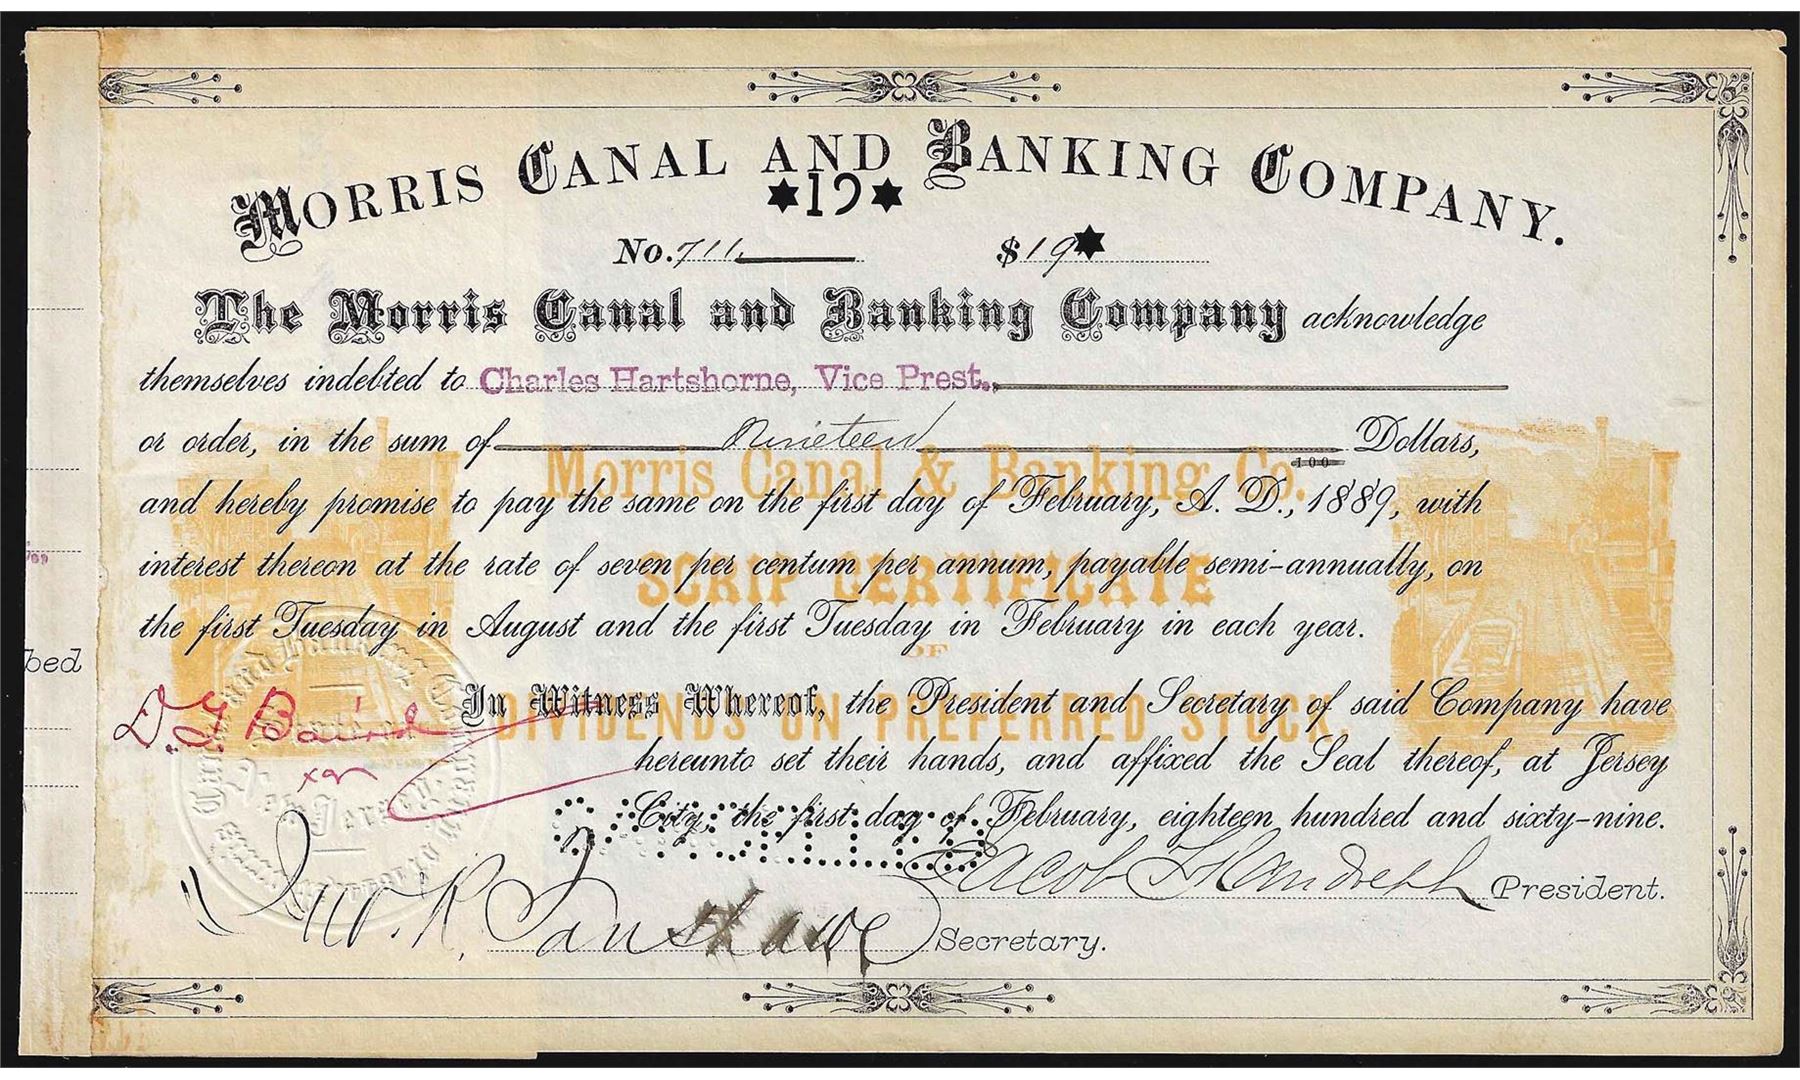 MORRIS CANAL AND BANKING COMPANY.
★19★
No. 711. $19★
The Morris Canal and Banking Company acknowledge
themselves indebted to Charles Hartshorne, Vice Prest.,
or order, in the sum of Nineteen Dollars,
100
Morris Canal & Banking Co.
and hereby promise to pay the same on the first day of February, A. D., 1889, with
interest thereon at the rate of seven per centum per annum, payable semi-annually, on
SCRIP CERTIFICATE
the first Tuesday in August and the first Tuesday in February in each year.
OF
bed
In Witness Whereof, the President and Secretary of said Company have
DIVIDENDS ON PREFERRED STOCK
hereunto set their hands, and affixed the Seal thereof, at Jersey
City, the first day of February, eighteen hundred and sixty-nine.
CANCELLED
President.
Secretary.